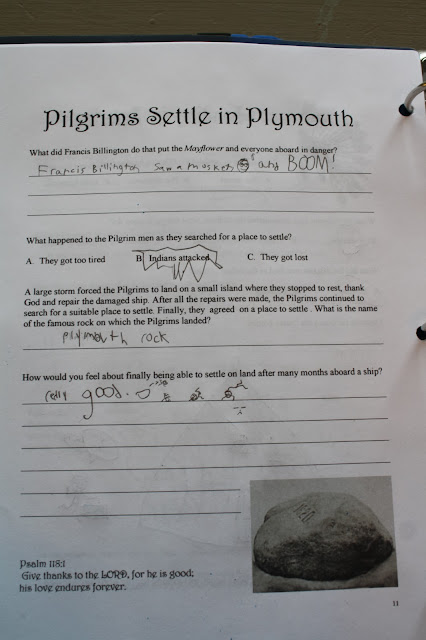 Pilgrims Settle in Plymouth
What did Francis Billington do that put the Mayflower and everyone aboard in danger?
Francis Billington Saw a musket and BOOM!
What happened to the Pilgrim men as they searched for a place to settle?
A. They got too tired B Indians attacked C. They got lost
A large storm forced the Pilgrims to land on a small island where they stopped to rest, thank
God and repair the damaged ship. After all the repairs were made, the Pilgrims continued to
search for a suitable place to settle. Finally, they agreed on a place to settle . What is the name
of the famous rock on which the Pilgrims landed?
plymouth rock
How would you feel about finally being able to settle on land after many months aboard a ship?
good.
Psalm 118:1
Give thanks to the LORD, for he is good;
his love endures forever.
11